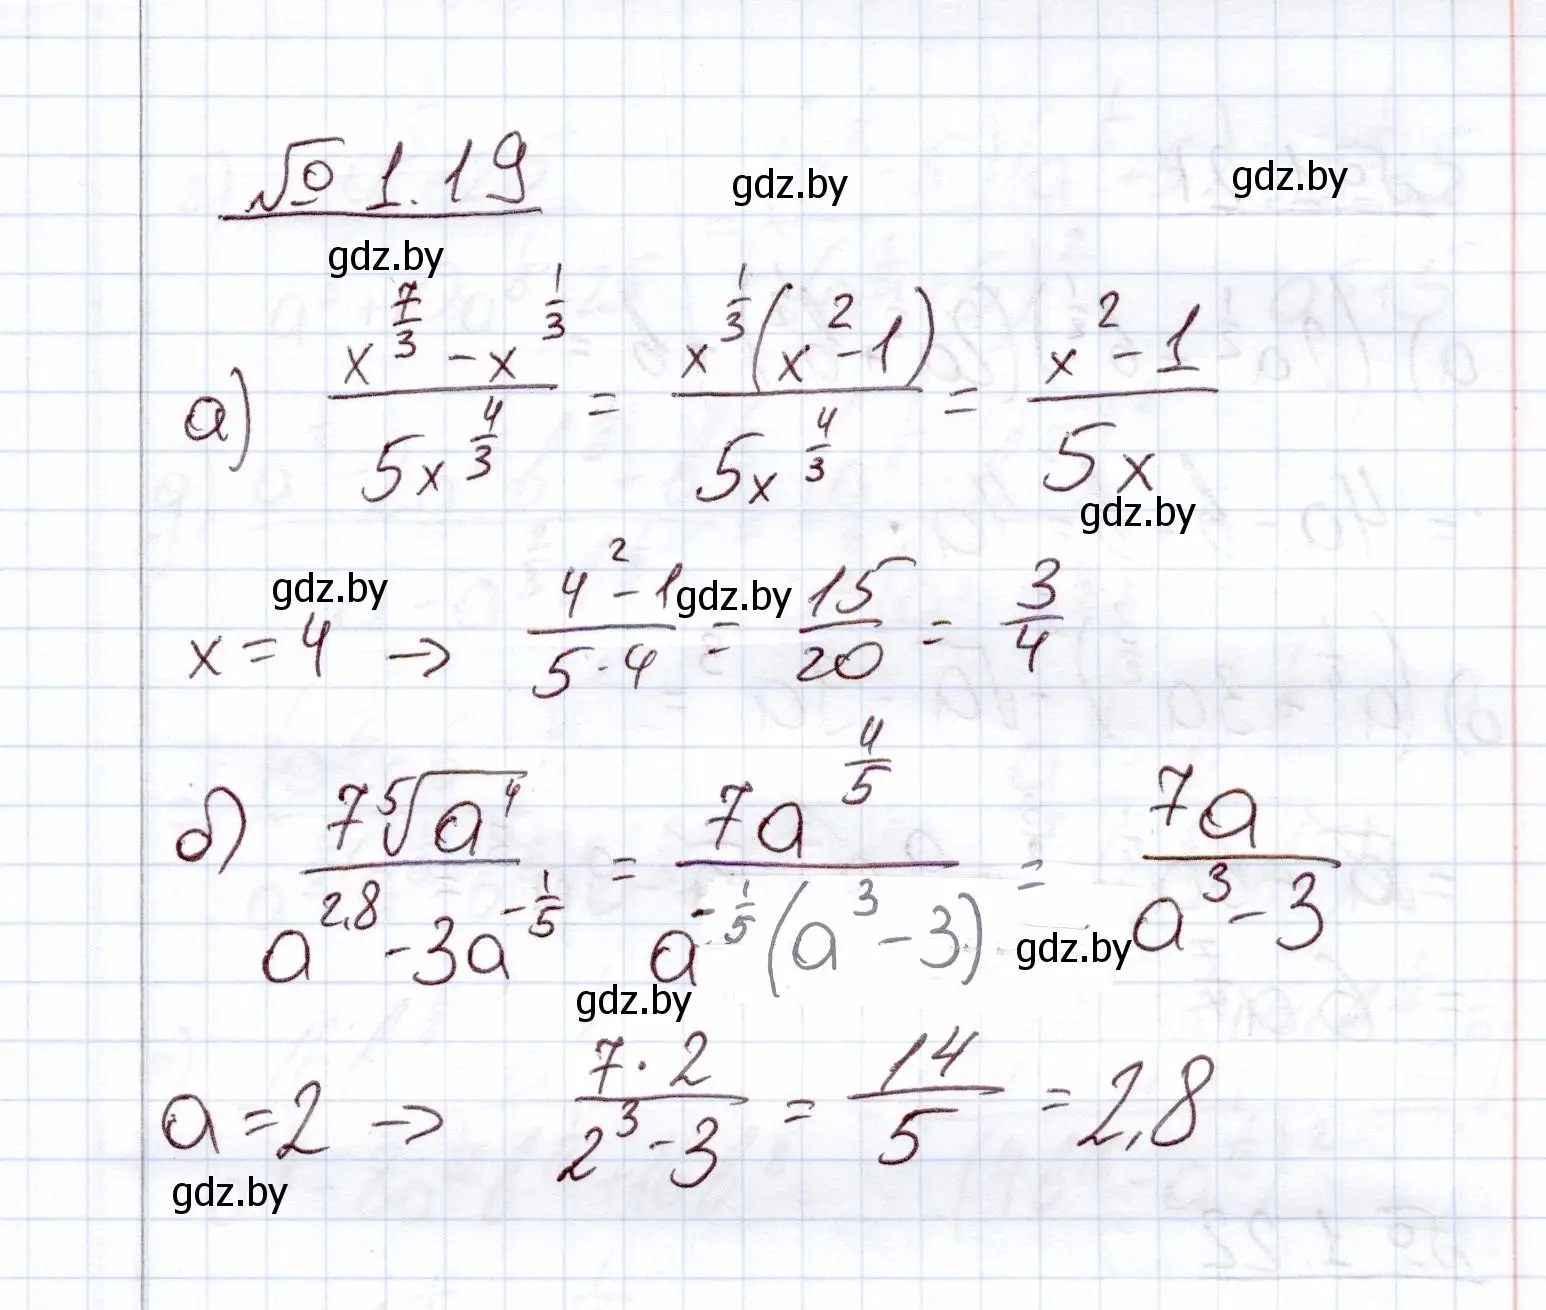 № 1.19
gdz.by gdz.by
gdz.by
а) (x^(7/3) - x^(1/3)) / (5x^(4/3)) = (x^(1/3)(x^2 - 1)) / (5x^(4/3)) = (x^2 - 1) / (5x)
gdz.by
gdz.by gdz.by
x = 4 → (4^2 - 1) / (5·4) = 15/20 = 3/4
б) (7 ⁵√(a^4)) / (a^(2,8) - 3a^(-1/5)) = (7a^(4/5)) / (a^(-1/5)(a^3 - 3)) = (7a) / (a^3 - 3)
gdz.by
gdz.by
a = 2 → (7·2) / (2^3 - 3) = 14/5 = 2,8
gdz.by